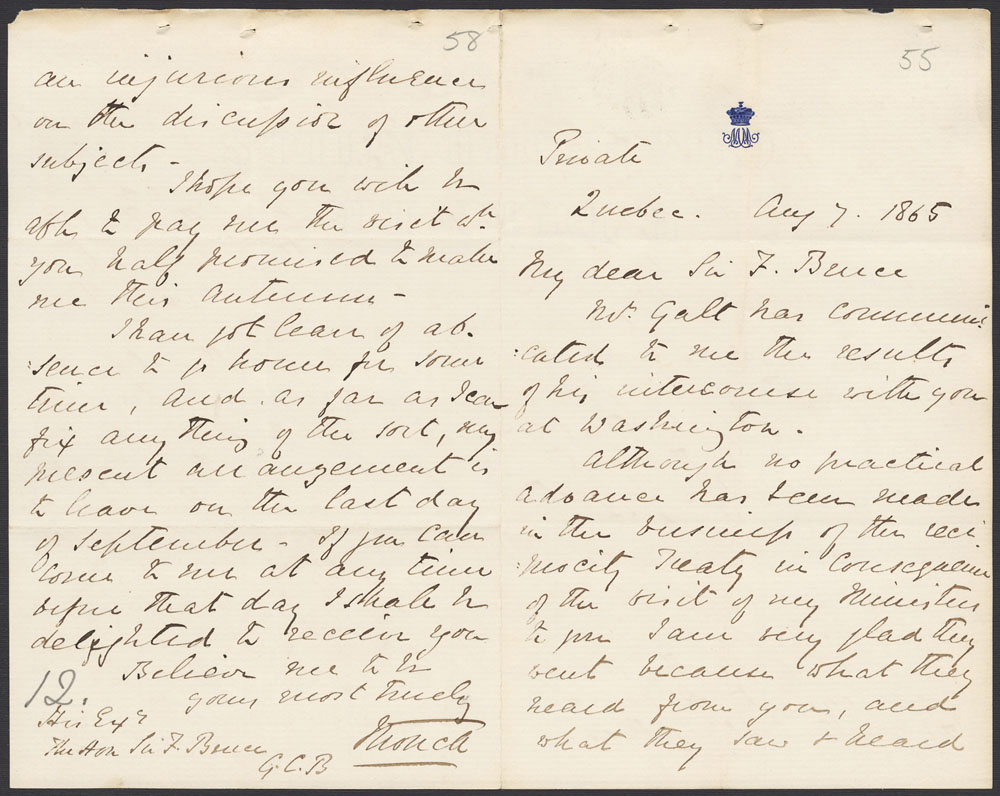 55
Private
Quebec. Aug 7. 1865
My dear Sir F. Bruce
Mr. Galt has communi:
:cated to me the results
of his intercourse with you
at Washington.
Although no practical
advance has been made
in the business of the reci
:procity Treaty in consequence
of the visit of my Ministers
to you I am very glad they
went because what they
heard from you, and
what they saw & heard
58
an injurious influence
on the discussion of other
subjects -
I hope you will be
able to pay me the visit wh.
you half promised to make
me this autumn -
I have got leave of ab.
:sence to go home for some
time, and as far as I can
fix anything of the sort, my
present arrangement is
to leave on the last day
of September - If you can
come to me at any time
before that day I shall be
delighted to receive you
Believe me to be
yours most truly
Monck
12.
His Exy
The Hon Sir F. Bruce
G.C.B